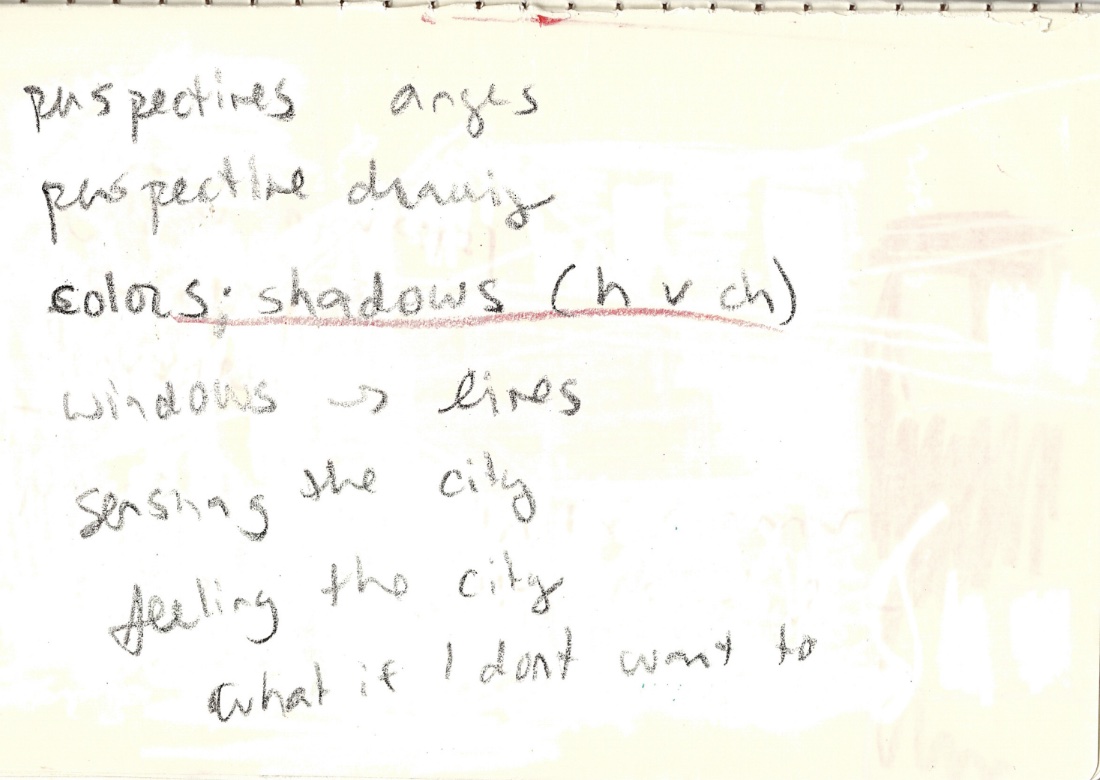 perspectives anges
perspective drawing
colors; shadows (h v ch)
windows → lines
sensing the city
feeling the city
what if I dont want to